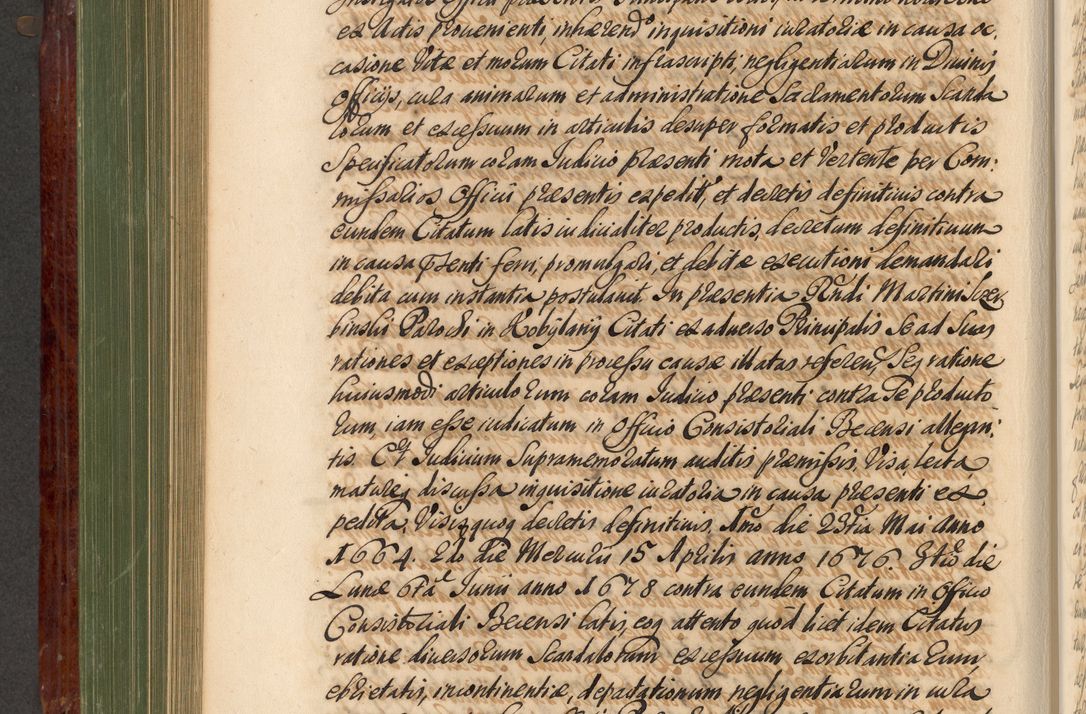 ex Actis provenienti, inhærend° inquisitioni iuratoriæ in causa oc,
casione Vitæ et morum Citati infrascripti, negligentiarum in Divinis
Officijs, cura animarum et administratione Sacramentorum Scanda
lorum et excessuum in articulis desuper formatis et productis
Specificatorum coram Iudicio præsenti mota et Vertente per Com:
missarios Officii præsentis expedit', et decretis definitivis contra
eundem Citatum latis iudicialiter productis, decretum definitivum
in causa pñsenti ferri, promulgari, et debitæ executioni demandari
debita cum instantia postulavit. In præsentia Rñdi Martini Szcer
binski Parochi in Kobylany Citati ex adverso Principalis Se ad Suas
rationes et exceptiones in processu causæ illatas referen, Seq ratione
huiusmodi articulorum coram Iudicio præsenti contra Se producto
rum, iam esse iudicatum in Officio Consistoriali Becensi allegan:
tis Et Iudicium Supramemoratum auditis præmissis, Visa, lecta
matureq discussa inquisitione iuratoria in causa præsenti ex
pedita, Visisquoq decretis definitivis, Imo die 23tia Maii anno
1664. 2do die Mercurii 15 Aprilis anno 1676. 3tio die
Lunæ 6ta Junii anno 1678 contra eundem Citatum in Officio
Consistoriali Becensi latis, eoq attento quod licet idem Citatus
ratione diversorum Scandalorum excessuum exorbitantiarum
ebrietatis, incontinentiæ, depactationum negligentiarum in cura